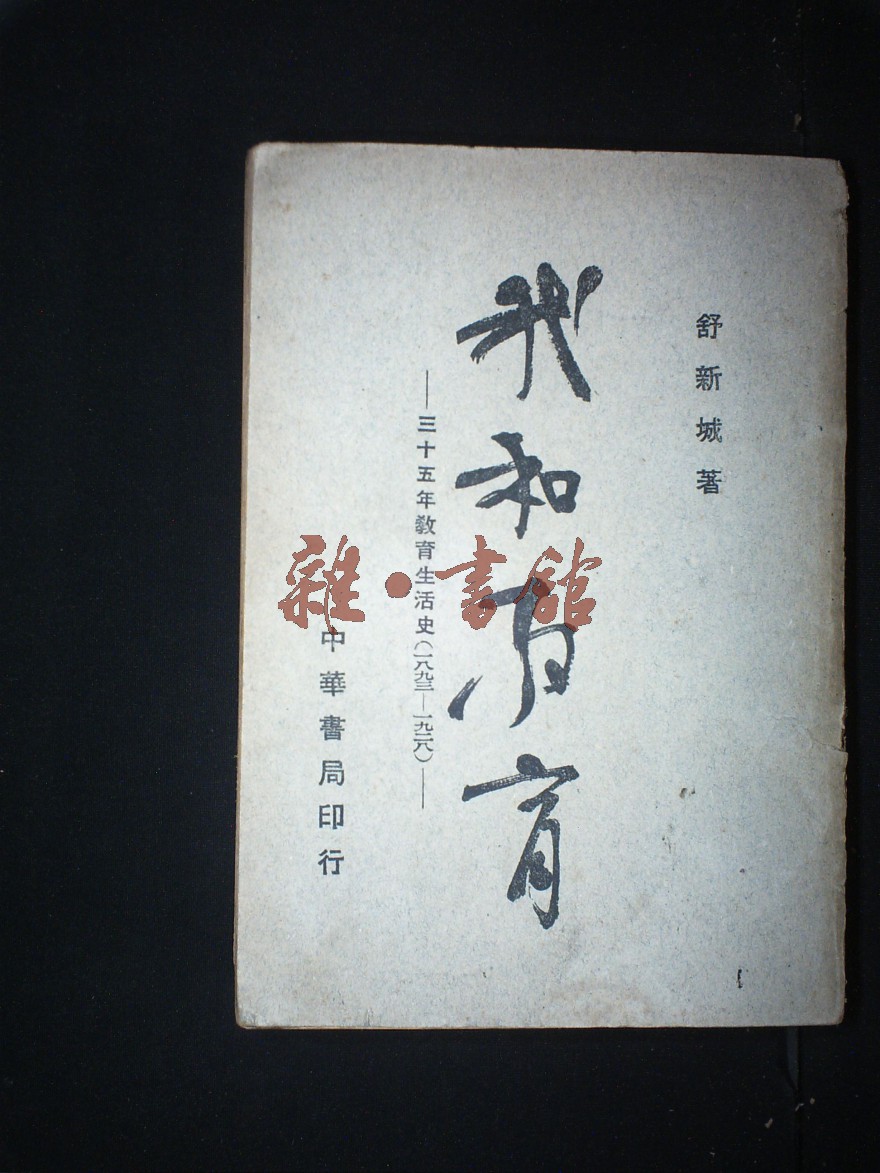 舒新城著
我和教育
——三十五年教育生活史(一八九三—一九二八)——
中華書局印行
雜·書館